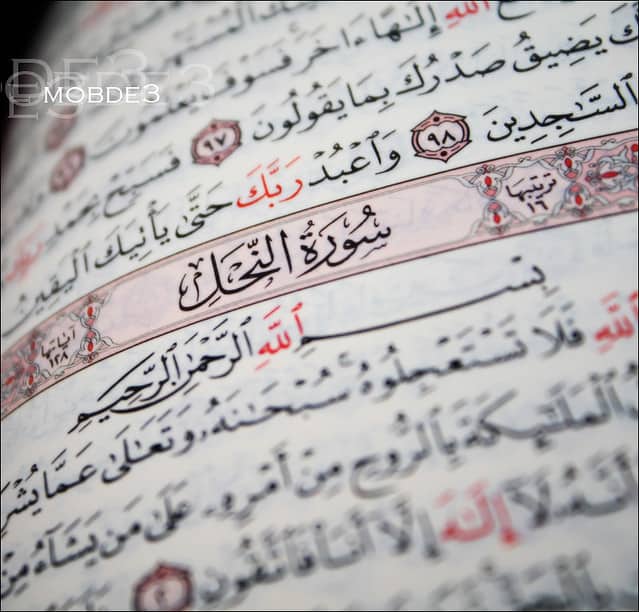 MOBDE3
ٱللَّهِ إِلَٰهًا ءَاخَرَ فَسَوْفَ يَعْلَمُونَ
يَضِيقُ صَدْرُكَ بِمَا يَقُولُونَ ٩٧ فَسَبِّحْ بِحَمْدِ
ٱلسَّٰجِدِينَ ٩٨ وَٱعْبُدْ رَبَّكَ حَتَّىٰ يَأْتِيَكَ ٱلْيَقِينُ
ترتيبها ١٦ سُورَةُ النَّحْلِ آياتها ١٢٨
بِسْمِ ٱللَّهِ ٱلرَّحْمَٰنِ ٱلرَّحِيمِ
ٱللَّهِ فَلَا تَسْتَعْجِلُوهُ سُبْحَٰنَهُۥ وَتَعَٰلَىٰ عَمَّا
ٱلْمَلَٰٓئِكَةَ بِٱلرُّوحِ مِنْ أَمْرِهِۦ عَلَىٰ مَن يَشَآءُ مِنْ
أَنَّهُۥ لَآ إِلَٰهَ إِلَّآ أَنَا۠ فَٱتَّقُونِ ٢